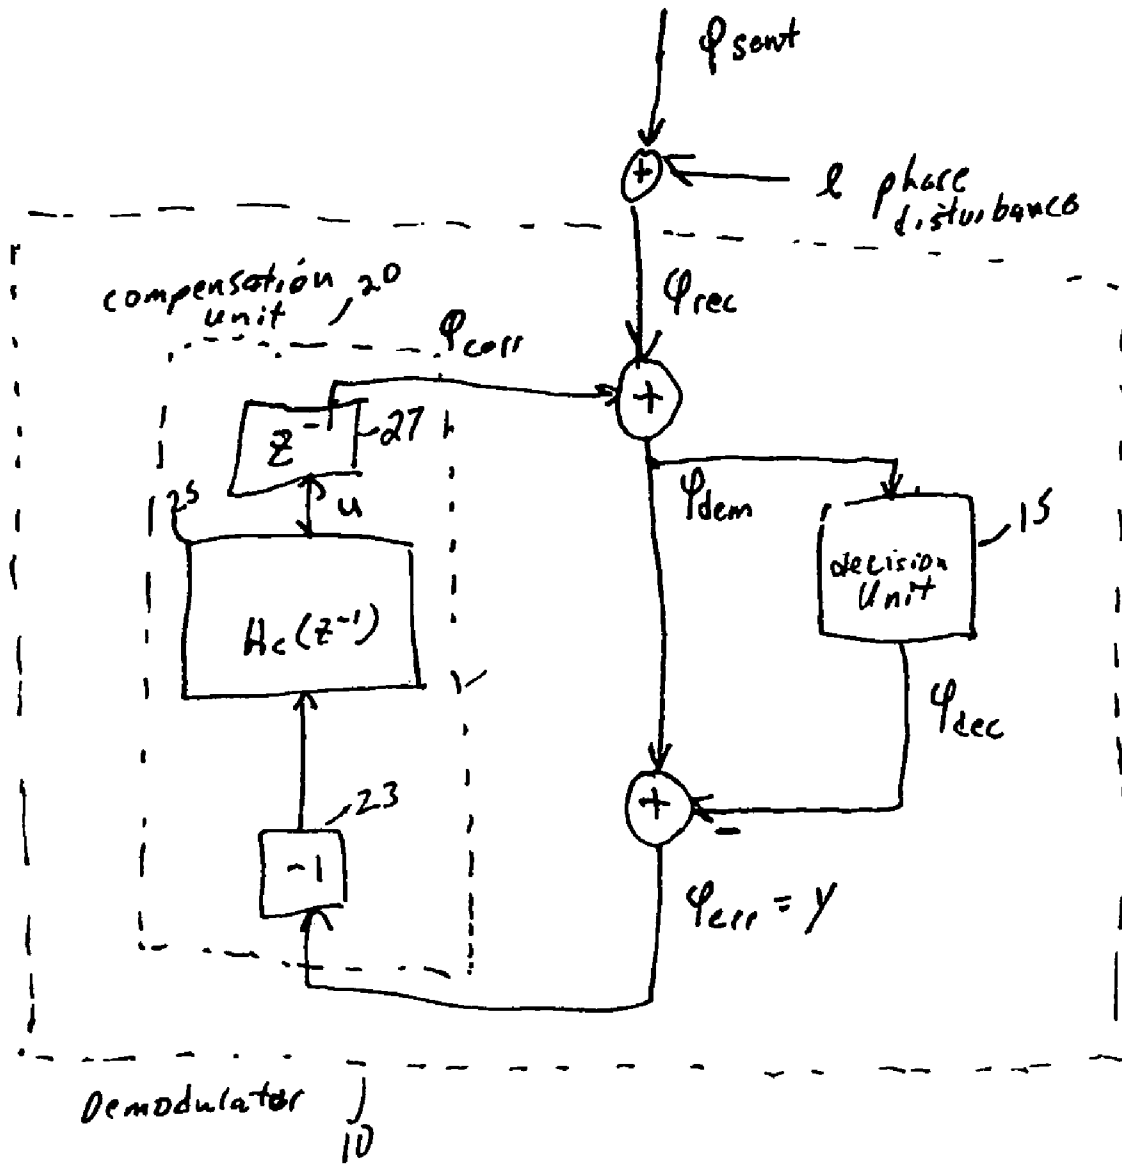 φsent
+
l phase
disturbance
compensation
unit
20
φcorr
φrec
+
z⁻¹
27
u
φdem
25
15
decision
Unit
Hc(z⁻¹)
φdec
23
+
-
-1
φerr = y
Demodulator
10